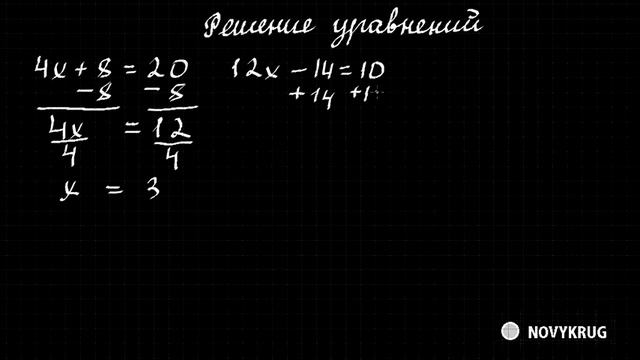 Решение уравнений
4x + 8 = 20
-8 -8
4x = 12
4 4
x = 3
12x - 14 = 10
+14 +1
NOVYKRUG